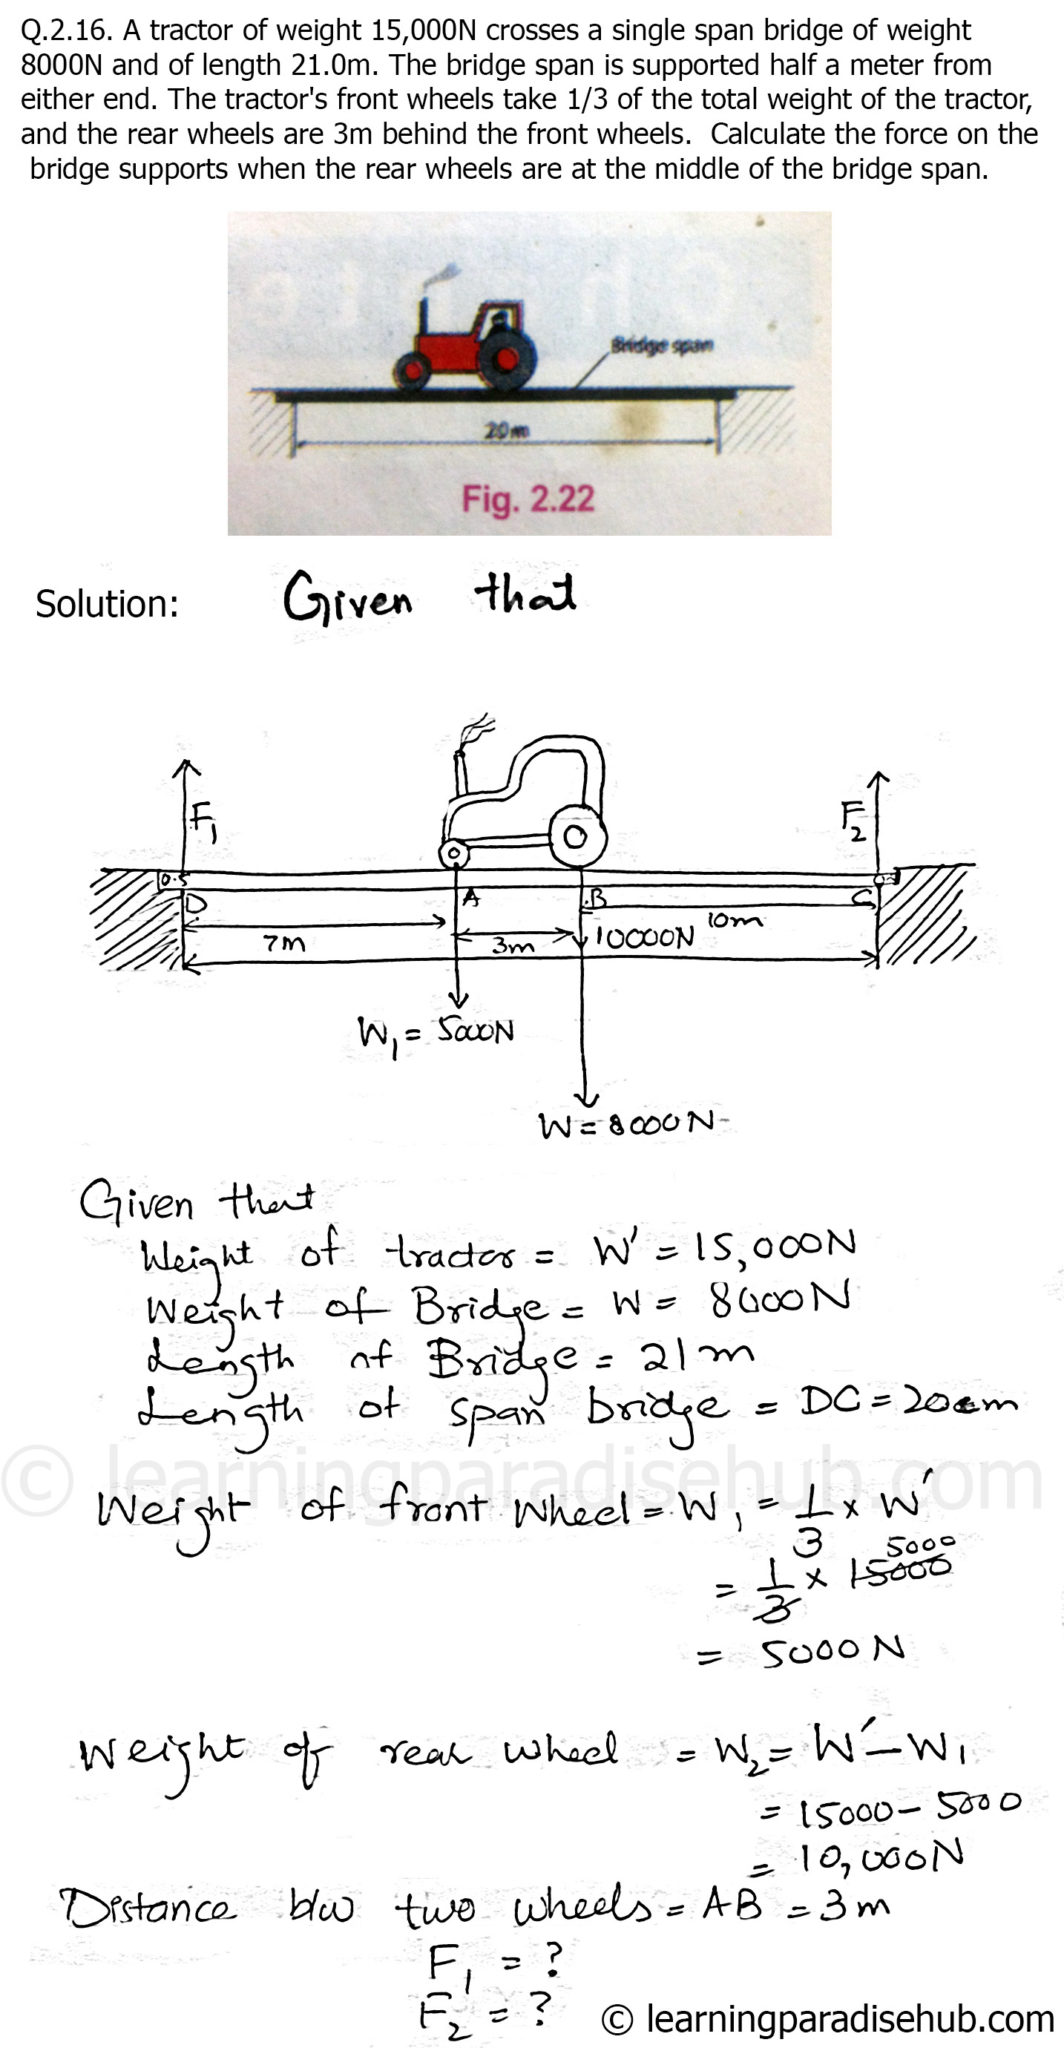 Q.2.16. A tractor of weight 15,000N crosses a single span bridge of weight
8000N and of length 21.0m. The bridge span is supported half a meter from
either end. The tractor's front wheels take 1/3 of the total weight of the tractor,
and the rear wheels are 3m behind the front wheels. Calculate the force on the
bridge supports when the rear wheels are at the middle of the bridge span.
Bridge span
20m
Fig. 2.22
Solution: Given that
F₁ F₂
0.5
D A B C
7m 3m 10000N 10m
W₁ = 5000N
W = 8000N
Given that
Weight of tractor = W' = 15,000N
Weight of Bridge = W = 8000N
Length of Bridge = 21m
Length of span bridge = DC = 20m
© learningparadisehub.com
Weight of front wheel = W₁ = 1/3 x W'
= 1/3 x 15000 5000
= 5000 N
Weight of rear wheel = W₂ = W' - W₁
= 15000 - 5000
= 10,000N
Distance b/w two wheels = AB = 3m
F₁ = ?
F₂ = ?
© learningparadisehub.com